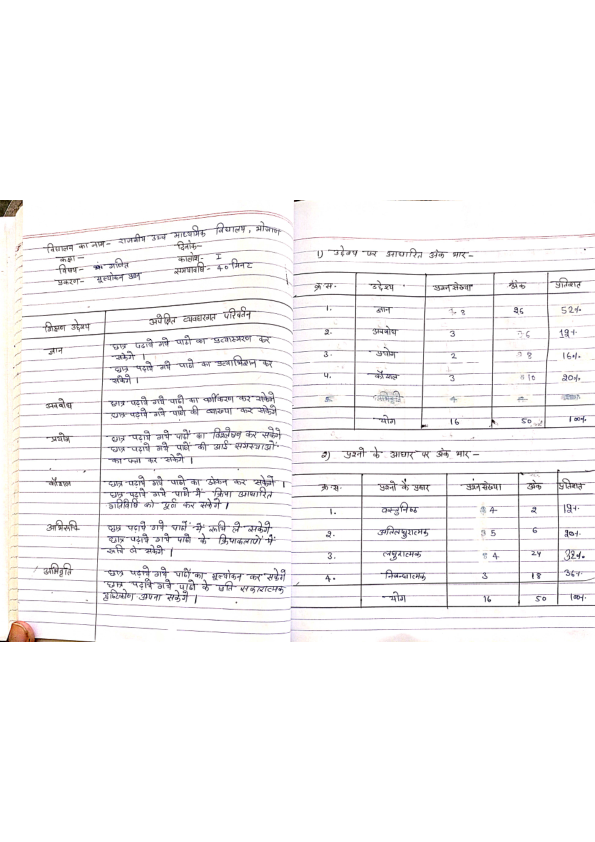 विद्यालय का नाम- राजकीय उच्च माध्यमिक विद्यालय,
कक्षा - दिनांक-
विषय- गणित कालांश- I
प्रकरण- मूल्यांकन समयावधि- 40 मिनट
शिक्षण उद्देश्य अपेक्षित व्यवहारगत परिवर्तन
ज्ञान छात्र पढ़ाये गये पाठों का प्रत्यास्मरण कर
सकेंगे ।
छात्र पढ़ाये गये पाठों का प्रत्याभिज्ञान कर
सकेंगे ।
अवबोध छात्र पढ़ाये गये पाठों का वर्गीकरण कर सकेंगे
छात्र पढ़ाये गये पाठों की व्याख्या कर सकेंगे
छात्र पढ़ाये गये पाठों का विश्लेषण कर सकेंगे
छात्र पढ़ाये गये पाठों की आई समस्याओं
का पता कर सकेंगे ।
कौशल छात्र पढ़ाये गये पाठों का अंकन कर सकेंगे ।
छात्र पढ़ाये गये पाठ में क्रिया आधारित
गतिविधि को पूर्ण कर सकेंगे ।
अभिरुचि छात्र पढ़ाये गये पाठों में रुचि ले सकेंगे
छात्र पढ़ाये गये पाठ के क्रियाकलापों में
रुचि ले सकेंगे ।
अभिवृत्ति छात्र पढ़ाये गये पाठों का मूल्यांकन कर सकेंगे
छात्र पढ़ाये गये पाठों के प्रति सकारात्मक
दृष्टिकोण अपना सकेंगे ।
1) उद्देश्य पर आधारित अंक भार -
क्र.स. उद्देश्य प्रश्न संख्या अंक प्रतिशत
1. ज्ञान 8 26 52%
2. अवबोध 3 6 12%
3. 2 8 16%
4. कौशल 3 10 20%
योग 16 50 100%
2) प्रश्नों के आधार पर अंक भार -
क्र.स. प्रश्नों के प्रकार प्रश्न संख्या अंक प्रतिशत
1. वस्तुनिष्ठ 4 2
2. अतिलघुरात्मक 5 6
3. लघुरात्मक 4 24
4. निबन्धात्मक 3 18 36%
योग 16 50 100%